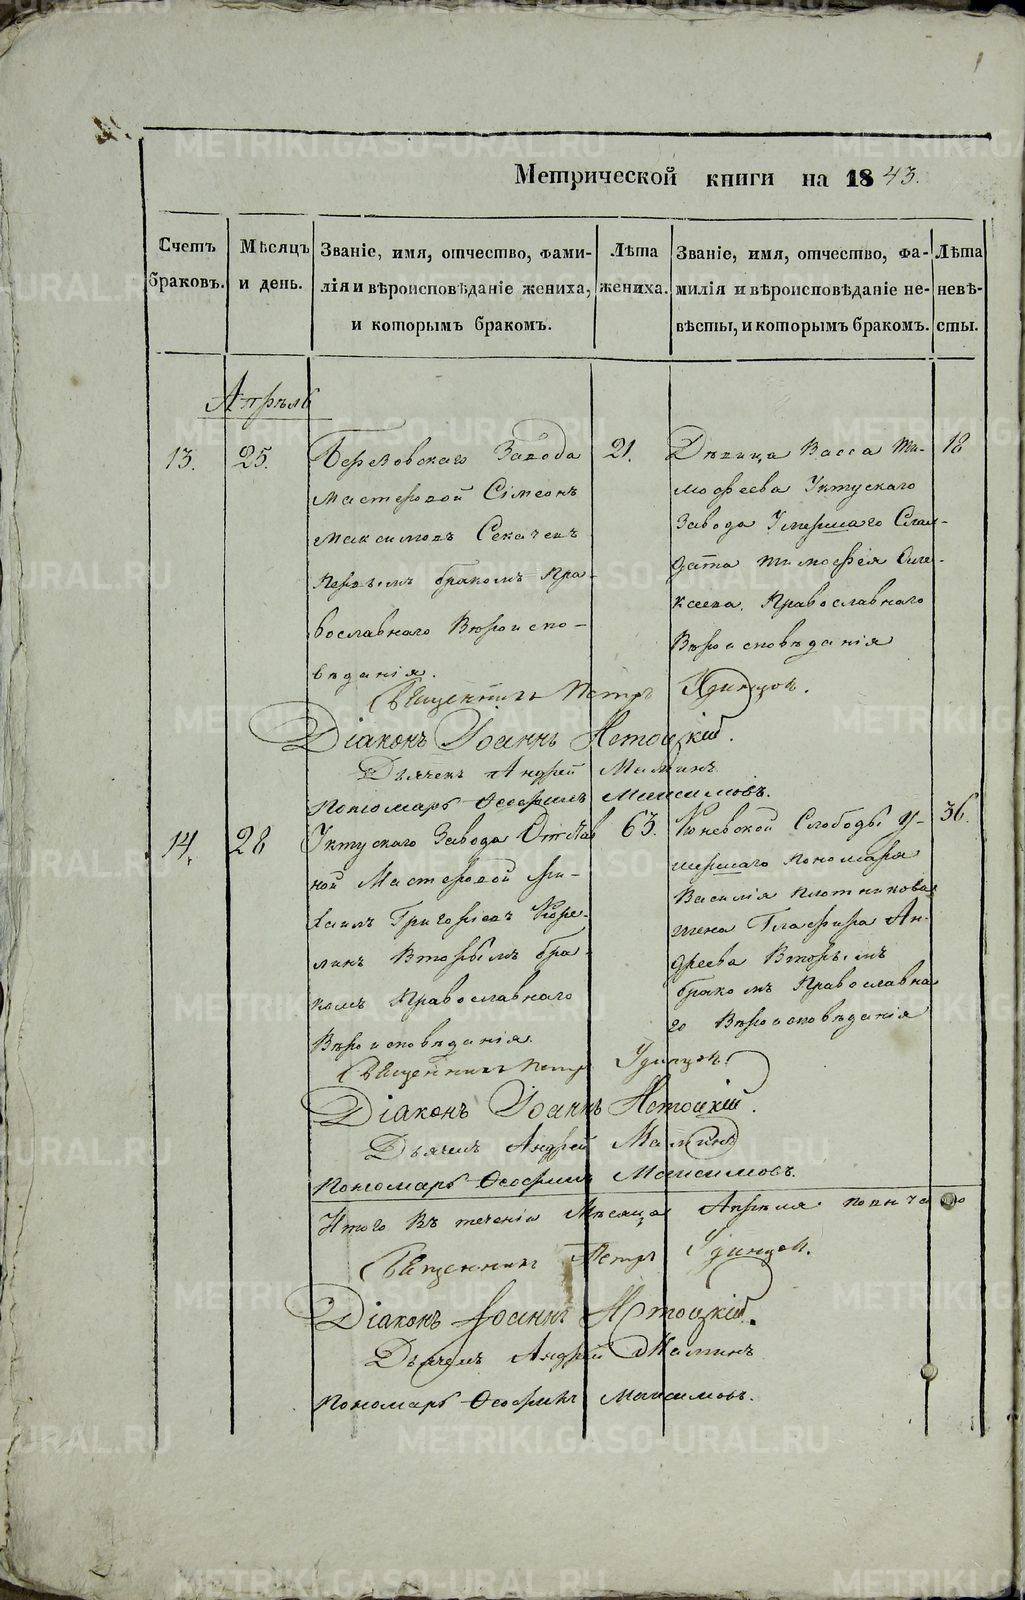 Метрической книги на 1843.
Счетъ браковъ.
Мѣсяцъ и день.
Званіе, имя, отчество, фами-
лія и вѣроисповѣданіе жениха,
и которымъ бракомъ.
Лѣта жениха.
Званіе, имя, отчество, фа-
милія и вѣроисповѣданіе не-
вѣсты, и которымъ бракомъ.
Лѣта невѣ-
сты.
Апрѣль
13.
25.
Березовскаго Завода
мастеровой Сімеонъ
Максимовъ Секачевъ
Первымъ бракомъ Пра-
вославнаго Вѣроиспо-
вѣданія.
21.
Дѣвица Васса Ти-
мофеева Уктускаго
Завода Умершаго Сол-
дата Тимофея Але-
ксеева, Православнаго
Вѣроисповѣданія
18
Священникъ Петръ Удинцов.
Діаконъ Іоаннъ
Дьячекъ Андрей Маминъ
Пономарь Ѳеофилъ Максимовъ.
14.
28
Уктускаго Завода Отстав
ной Мастеровой Ми-
хаилъ Григорьевъ Коре-
линъ Вторымъ бра-
комъ Православнаго
Вѣроисповѣданія.
63.
Слободы у-
мершаго пономаря
Василія Плотникова
жена Глафира Ан-
дреева Вторымъ
бракомъ Православна
го Вѣроисповѣданія
36.
Священникъ Петръ Удинцов.
Діаконъ Іоаннъ
Дьячекъ Андрей Маминъ
Пономарь Ѳеофилъ Максимовъ.
Итого Въ теченіи Мѣсяца Апреля
Священникъ Петръ Удинцов.
Діаконъ Іоаннъ
Дьячекъ Андрей Маминъ
Пономарь Ѳеофилъ Максимовъ.
METRIKI.GASO-URAL.RU